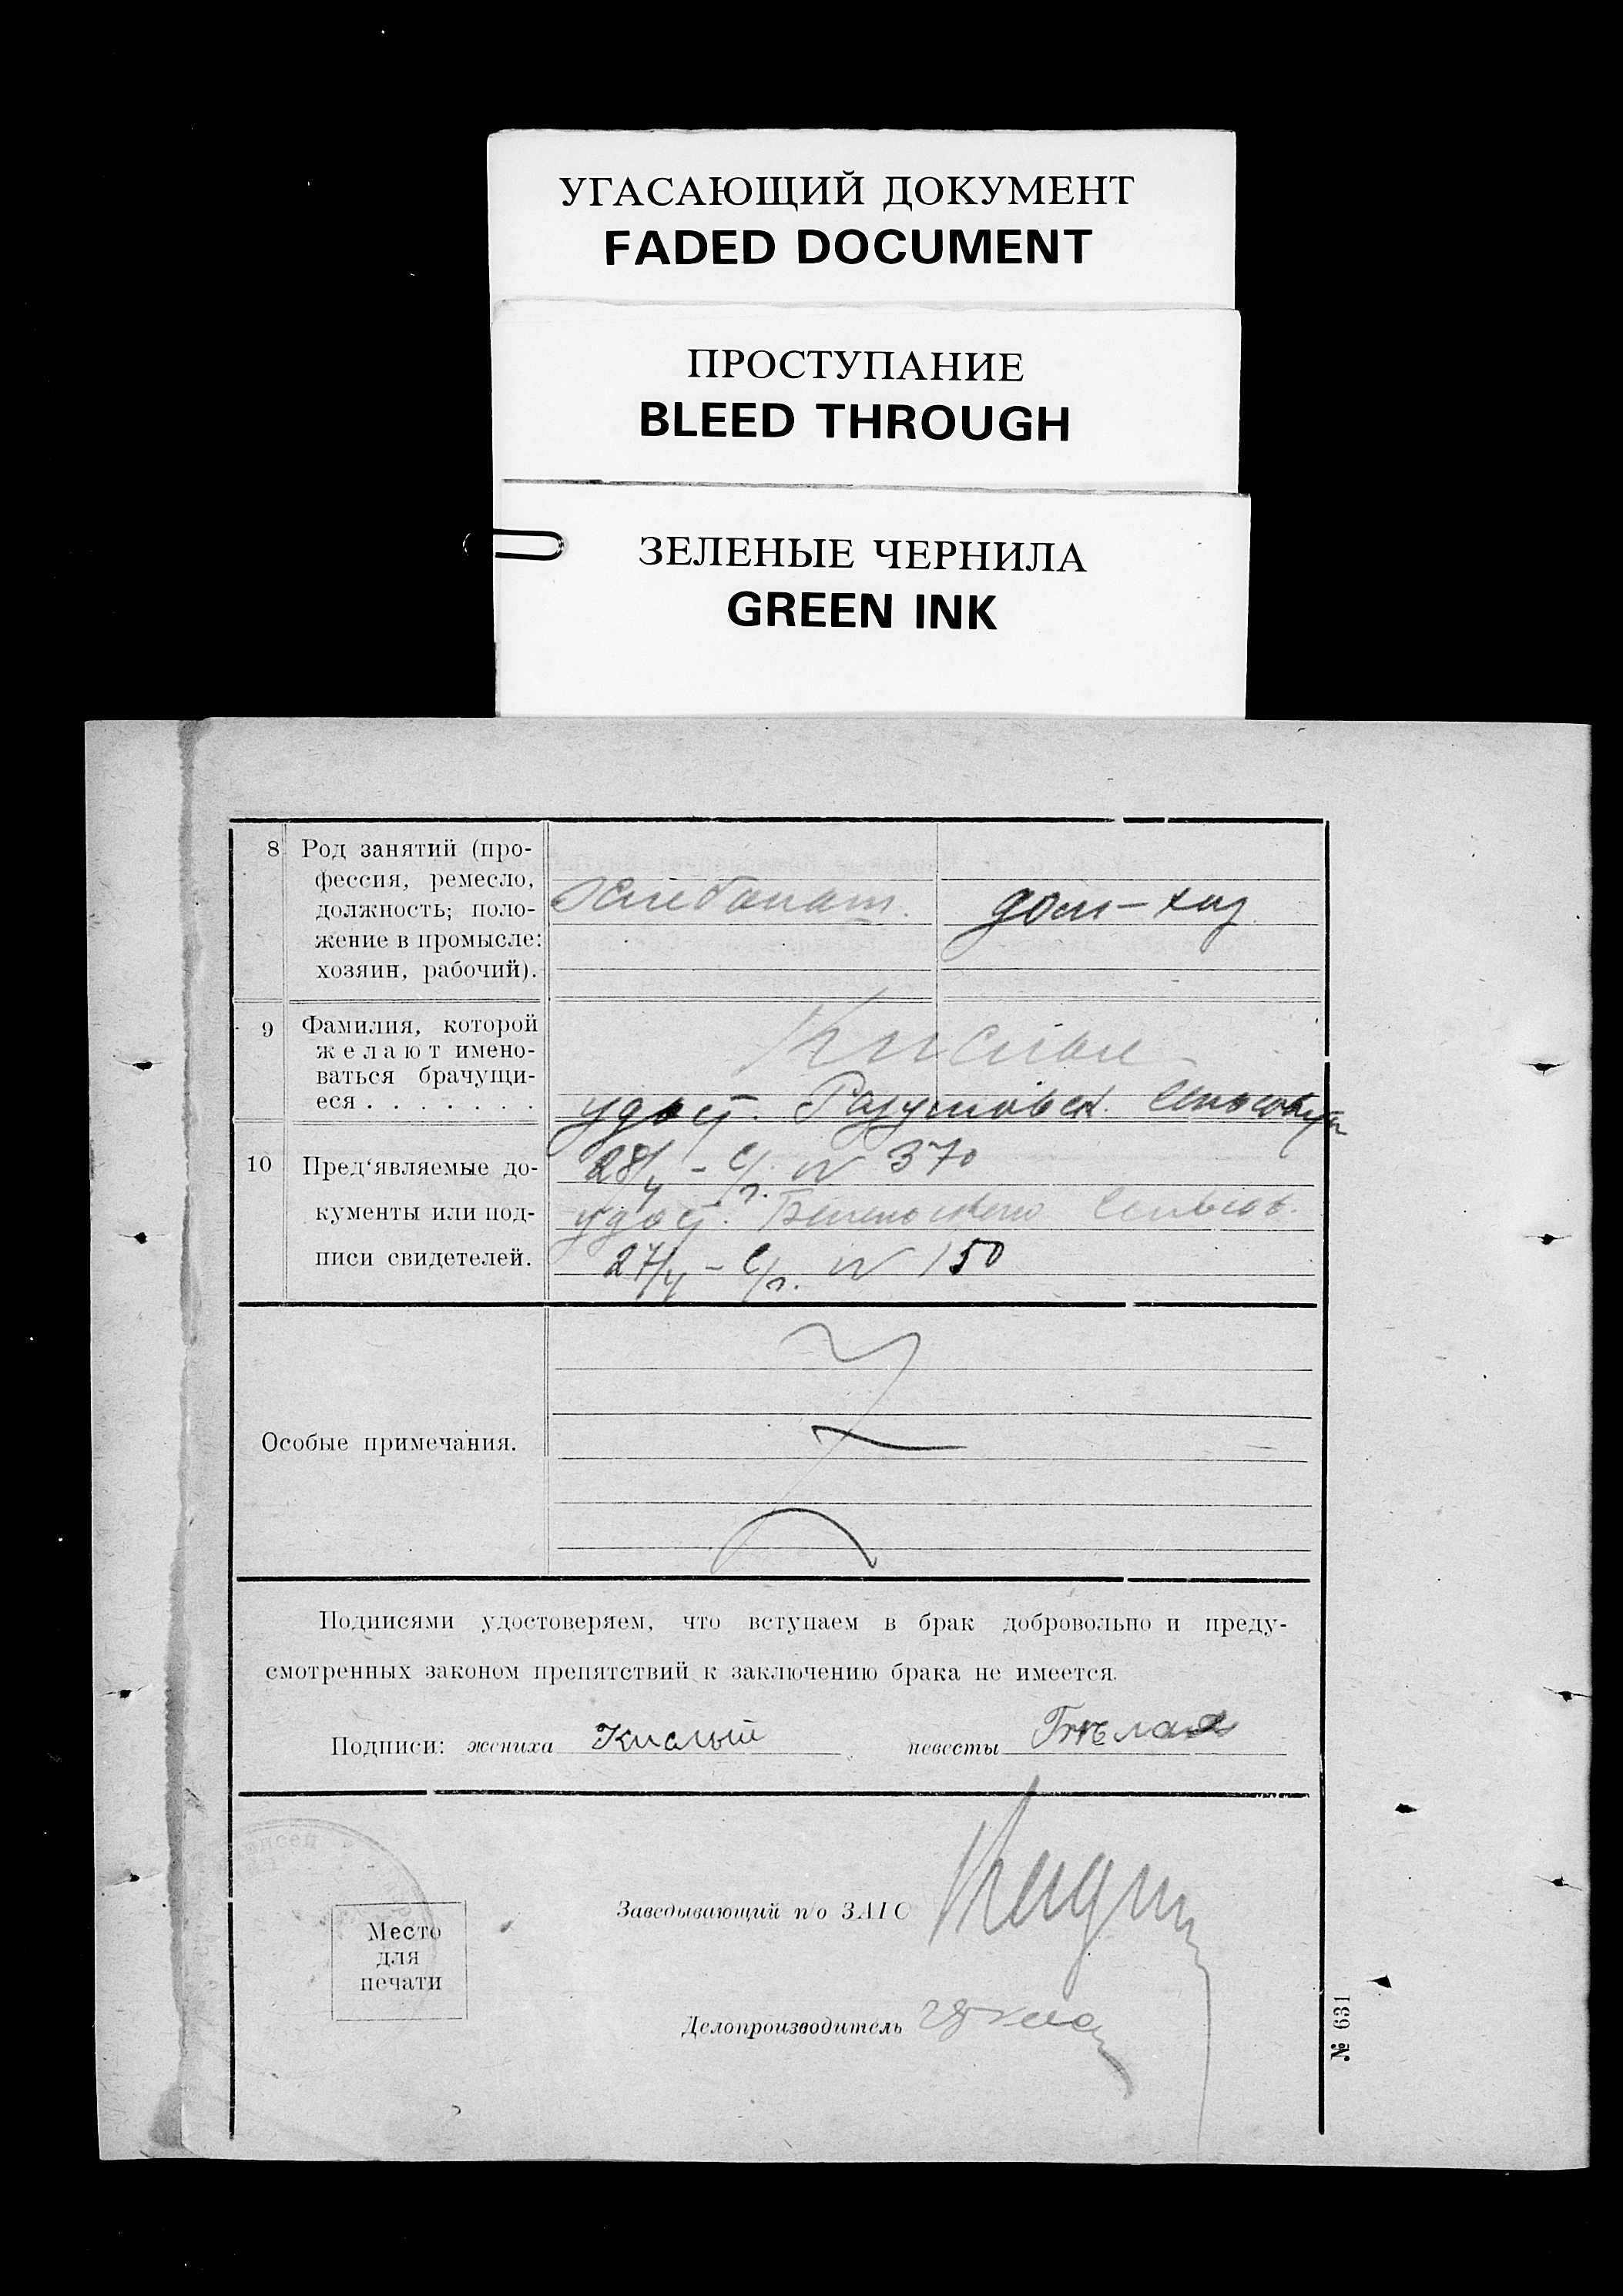 УГАСАЮЩИЙ ДОКУМЕНТ
FADED DOCUMENT
ПРОСТУПАНИЕ
BLEED THROUGH
ЗЕЛЕНЫЕ ЧЕРНИЛА
GREEN INK
8 Род занятий (про-
фессия, ремесло,
должность; поло-
жение в промысле:
хозяин, рабочий).
Хлебопаш. дом-хоз
9 Фамилия, которой
желают имено-
ваться брачущи-
еся . . . . . . .
удост. Разумовск. Сельсовета
10 Пред‘являемые до-
кументы или под-
писи свидетелей.
28/V - с/г. N 370
удост. Сельсов.
27/V - с/г. N 150
Особые примечания.
Подписями удостоверяем, что вступаем в брак добровольно и преду-
смотренных законом препятствий к заключению брака не имеется.
Подписи: жениха Кислый невесты
Заведывающий п/о ЗАГС
Место
для
печати
Делопроизводитель
№ 631